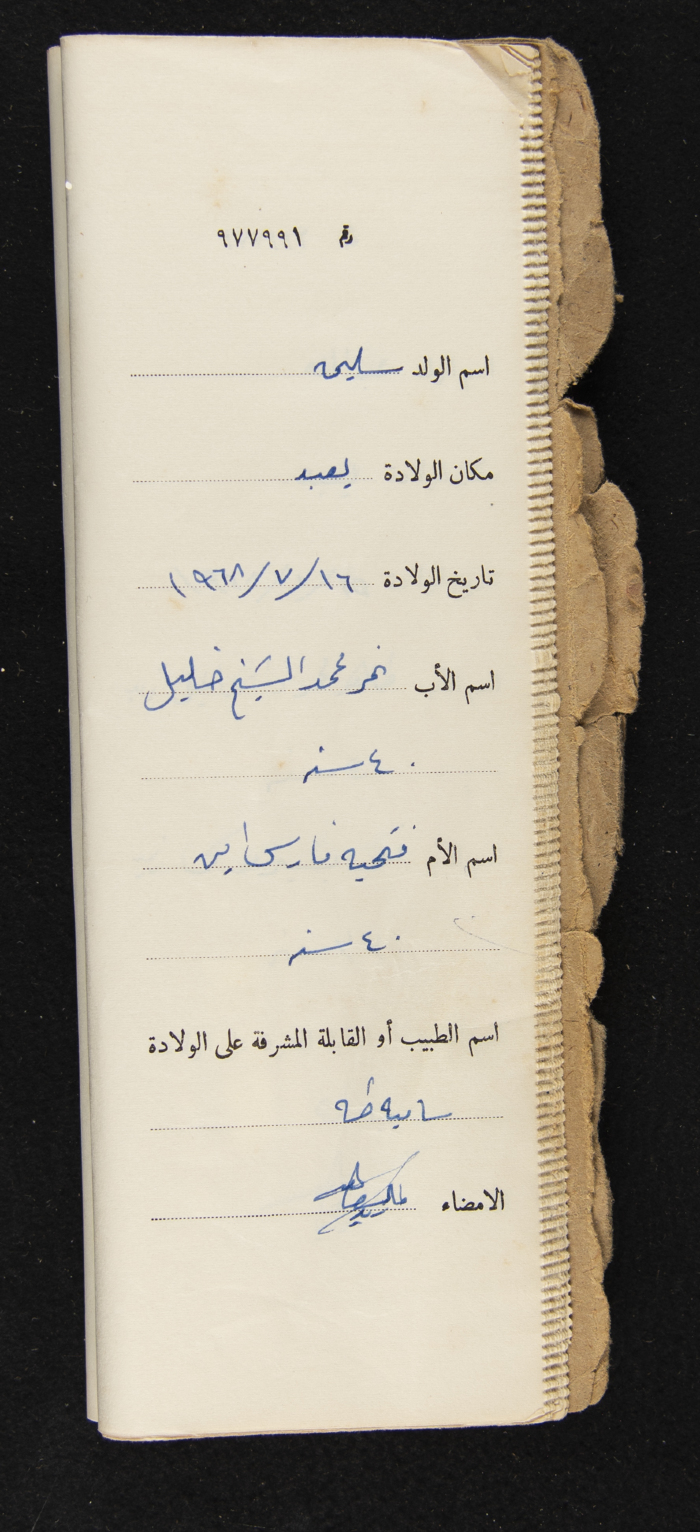 رقم ٩٧٧٩٩١
اسم الولد سليمه
مكان الولادة يعبد
تاريخ الولادة ١٦/٧/١٩٦٨
اسم الأب نمر محمد الشيخ خليل
٤٠ سنه
اسم الأم فتحيه فارس امين
٤٠ سنه
اسم الطبيب أو القابلة المشرفة على الولادة
ساميه طه
الامضاء